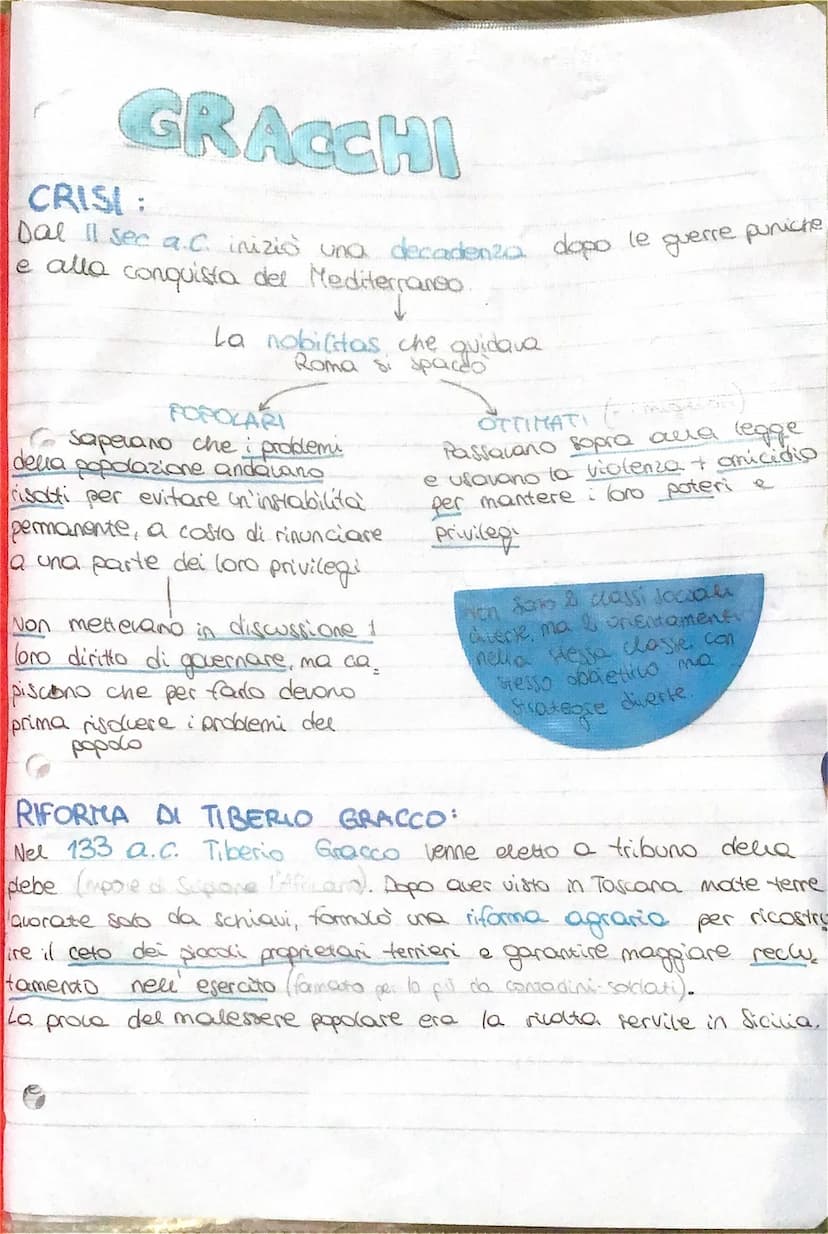 GRACCHI
CRISI:
Dal II sec a.C. iniziò una decadenza dopo le guerre puniche
e alla conquista del Mediterraneo.
La nobilitas che guidava
Roma si spaccò
POPOLARI
Sapevano che i problemi
della popolazione andavano
risolti per evitare un'instabilità
permanente, a costo di rinunciare
a una parte dei loro privilegi
Non mettevano in discussione i
loro diritto di governare, ma ca=
piscono che per farlo devono
prima risolvere i problemi del
popolo
OTTIMATI (= i migliori)
Passavano sopra alla legge
e usavano la violenza + omicidio
per mantere i loro poteri e
privilegi
Non sono 2 classi sociali
diverse, ma 2 orientamenti
nella stessa classe, con
stesso obiettivo ma
strategie diverse.
RIFORMA DI TIBERIO GRACCO:
Nel 133 a.C. Tiberio Gracco venne eletto a tribuno della
plebe (nipote di Scipione l'Africano). Dopo aver visto in Toscana molte terre
lavorate solo da schiavi, formulò una riforma agraria per ricostru
ire il ceto dei piccoli proprietari terrieri e garantire maggiore reclu=
tamento nell'esercito (formato per lo più da contadini-soldati).
La prova del malessere popolare era la rivolta servile in Sicilia.